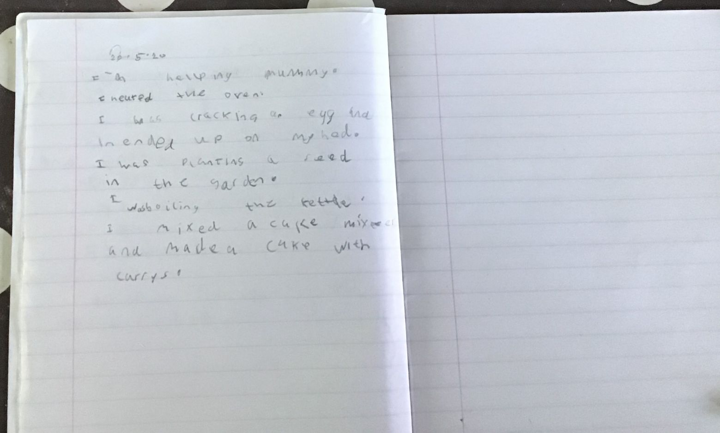 5.20
helping mummy.
the oven.
I was cracking an egg
ended up on my
I was planting a seed
in the garden.
I was boiling the kettle.
I mixed a cake
and made a cake with